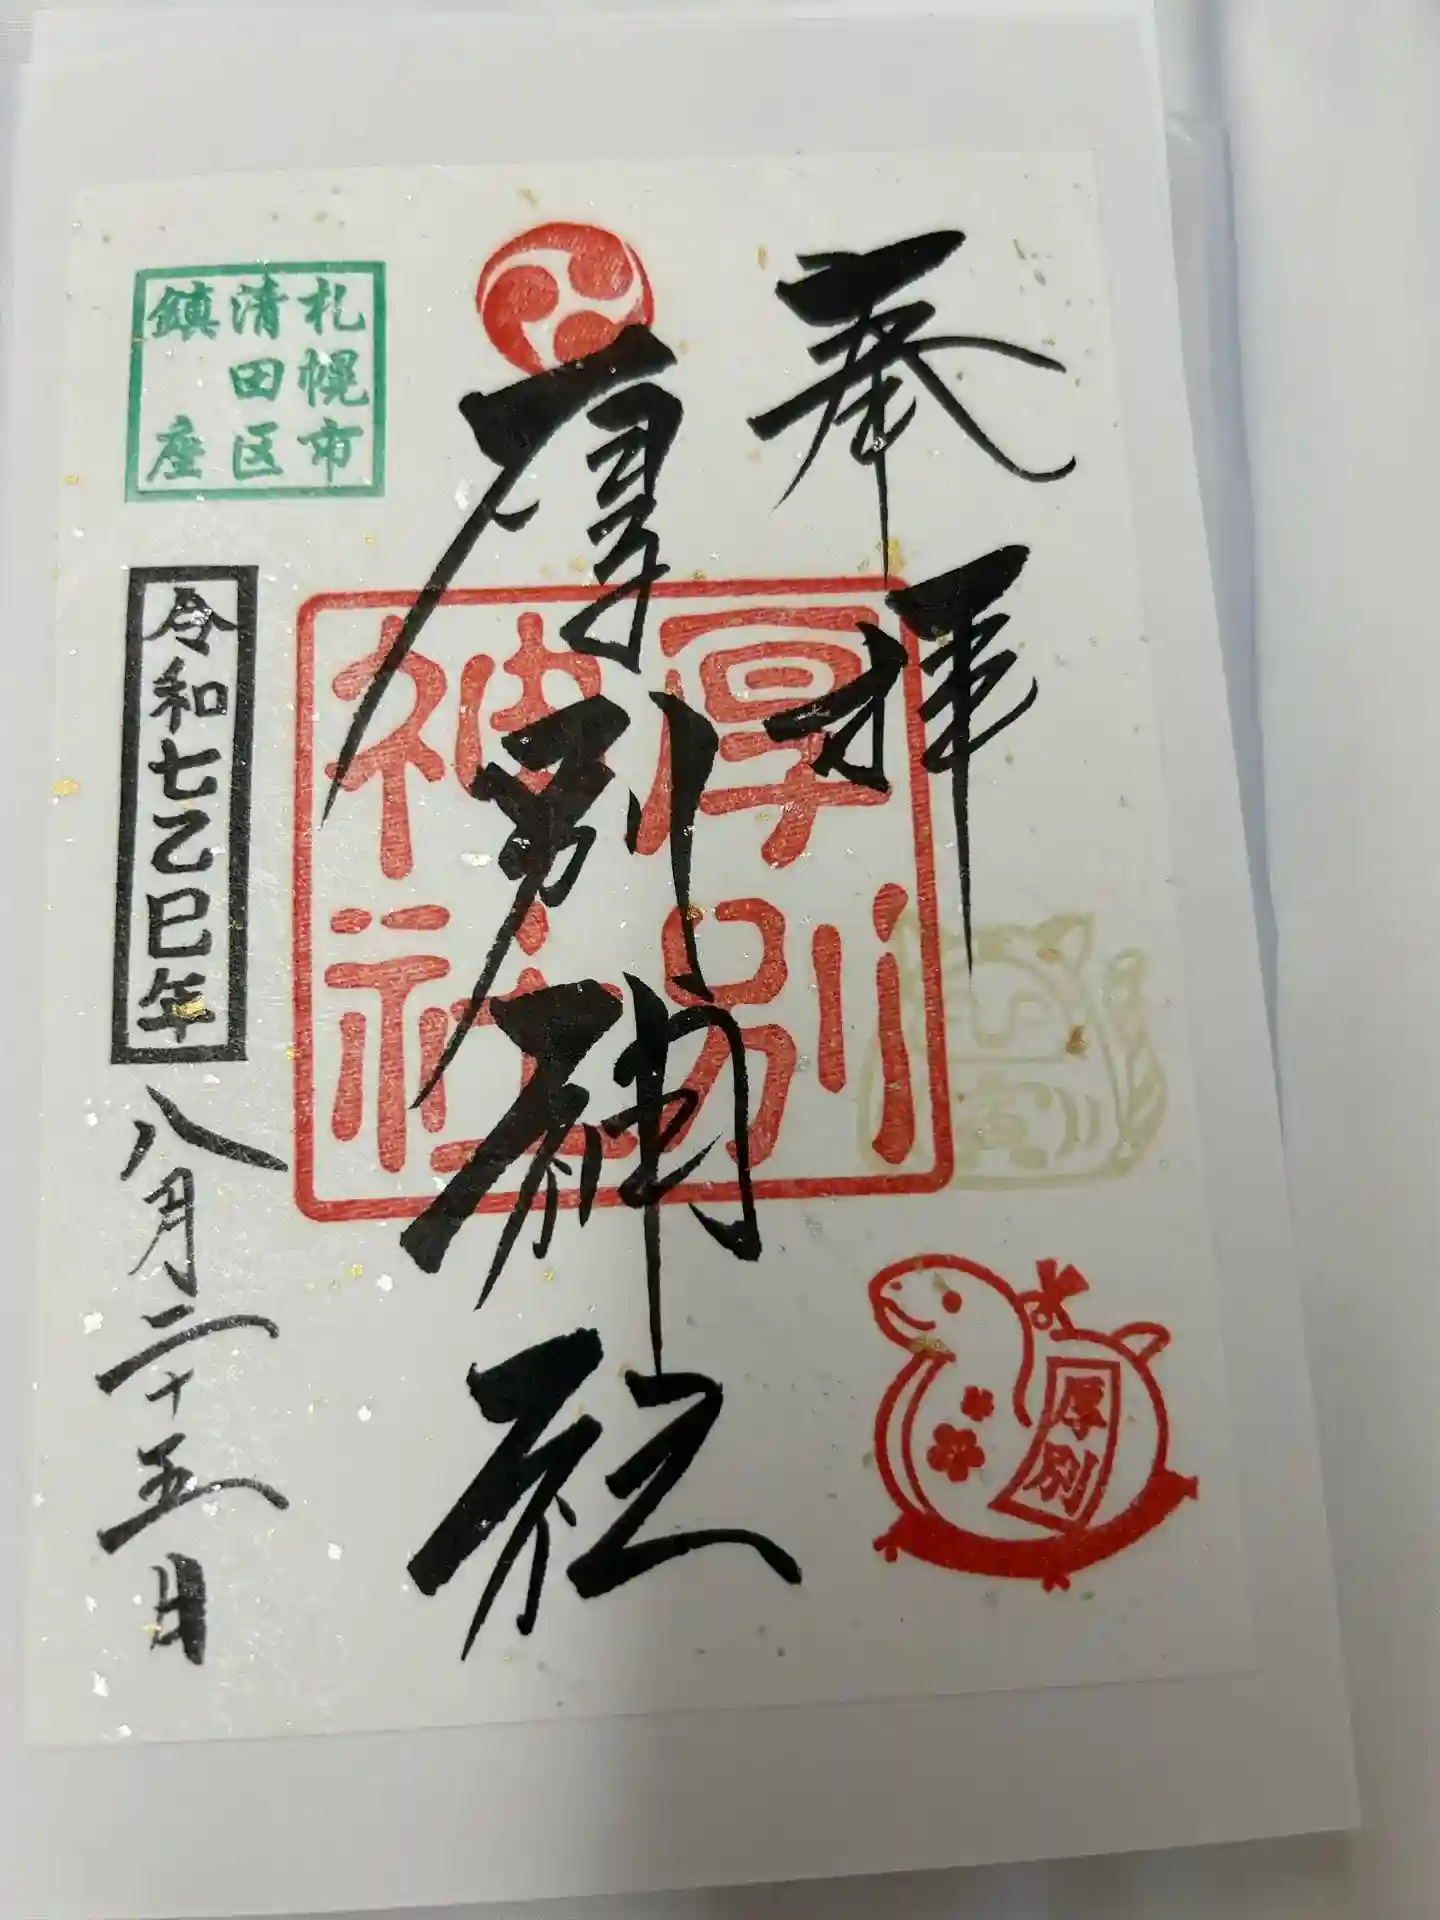 奉拝
厚別神社
厚別
神社
寅
厚別
札幌市
清田区
鎮座
令和七乙巳年
八月二十五日